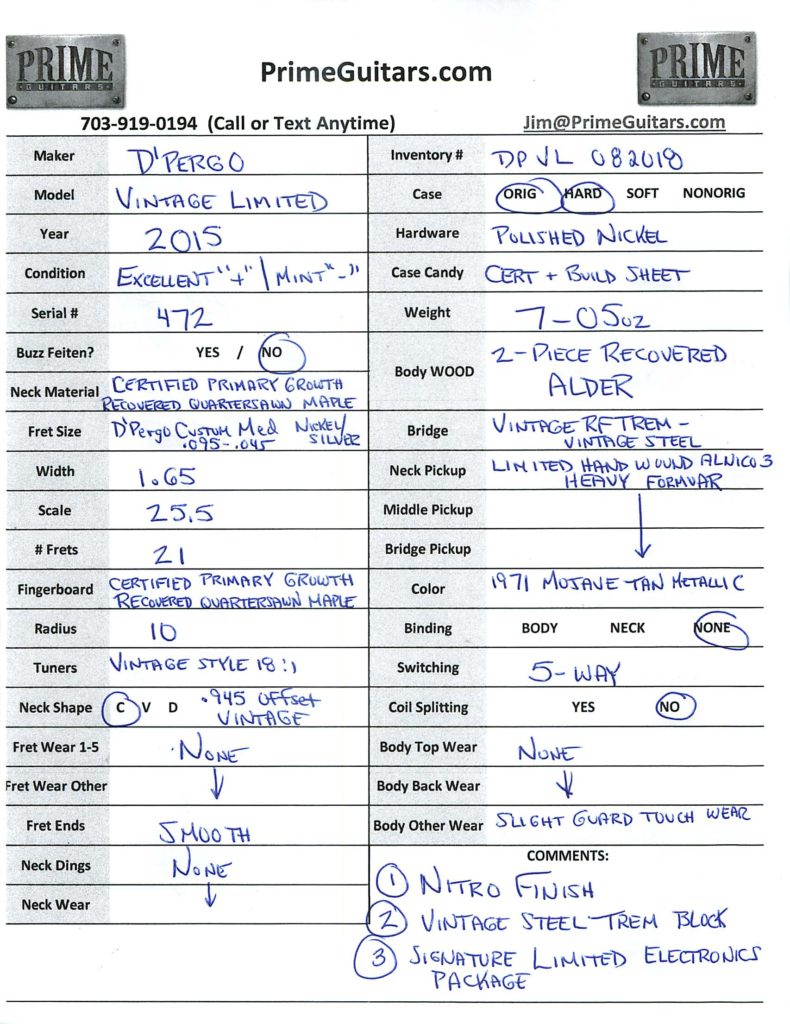 PRIME
GUITARS
PrimeGuitars.com
PRIME
GUITARS
703-919-0194 (Call or Text Anytime)
Jim@PrimeGuitars.com
Maker D'PERGO
Model VINTAGE LIMITED
Year 2015
Condition EXCELLENT "+" / MINT "-"
Serial # 472
Buzz Feiten? YES / NO
Neck Material CERTIFIED PRIMARY GROWTH
RECOVERED QUARTERSAWN MAPLE
Fret Size D'PERGO CUSTOM MED NICKEL/
SILVER
.095-.045
Width 1.65
Scale 25.5
# Frets 21
Fingerboard CERTIFIED PRIMARY GROWTH
RECOVERED QUARTERSAWN MAPLE
Radius 10
Tuners VINTAGE STYLE 18:1
Neck Shape C V D .945 OFFSET
VINTAGE
Fret Wear 1-5 NONE
Fret Wear Other
Fret Ends SMOOTH
Neck Dings NONE
Neck Wear
Inventory # DPVL 082018
Case ORIG HARD SOFT NONORIG
Hardware POLISHED NICKEL
Case Candy CERT + BUILD SHEET
Weight 7-05oz
Body WOOD 2-PIECE RECOVERED
ALDER
Bridge VINTAGE RF TREM -
VINTAGE STEEL
Neck Pickup LIMITED HAND WOUND ALNICO 3
HEAVY FORMVAR
Middle Pickup
Bridge Pickup
Color 1971 MOJAVE TAN METALLIC
Binding BODY NECK NONE
Switching 5-WAY
Coil Splitting YES NO
Body Top Wear NONE
Body Back Wear
Body Other Wear SLIGHT GUARD TOUCH WEAR
COMMENTS:
1 NITRO FINISH
2 VINTAGE STEEL TREM BLOCK
3 SIGNATURE LIMITED ELECTRONICS
PACKAGE